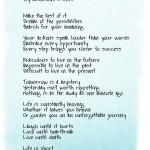 Make the best of it
Dream of the possibilities
Search for your indulgence
Your actions speak louder than your words
Embrace every opportunity
Every step brings you closer to success
Ridiculous to live in the future
Impossible to live in the past
Difficult to live in the present
Tomorrow is a mystery
Yesterday isn't worth regretting
Nothing is as far away as one minute ago
Life is constantly moving
whether it leaves you behind
Or guides you on an unforgettable journey
Laugh until it hurts
Love until heartbreak
Live until death
Life is short